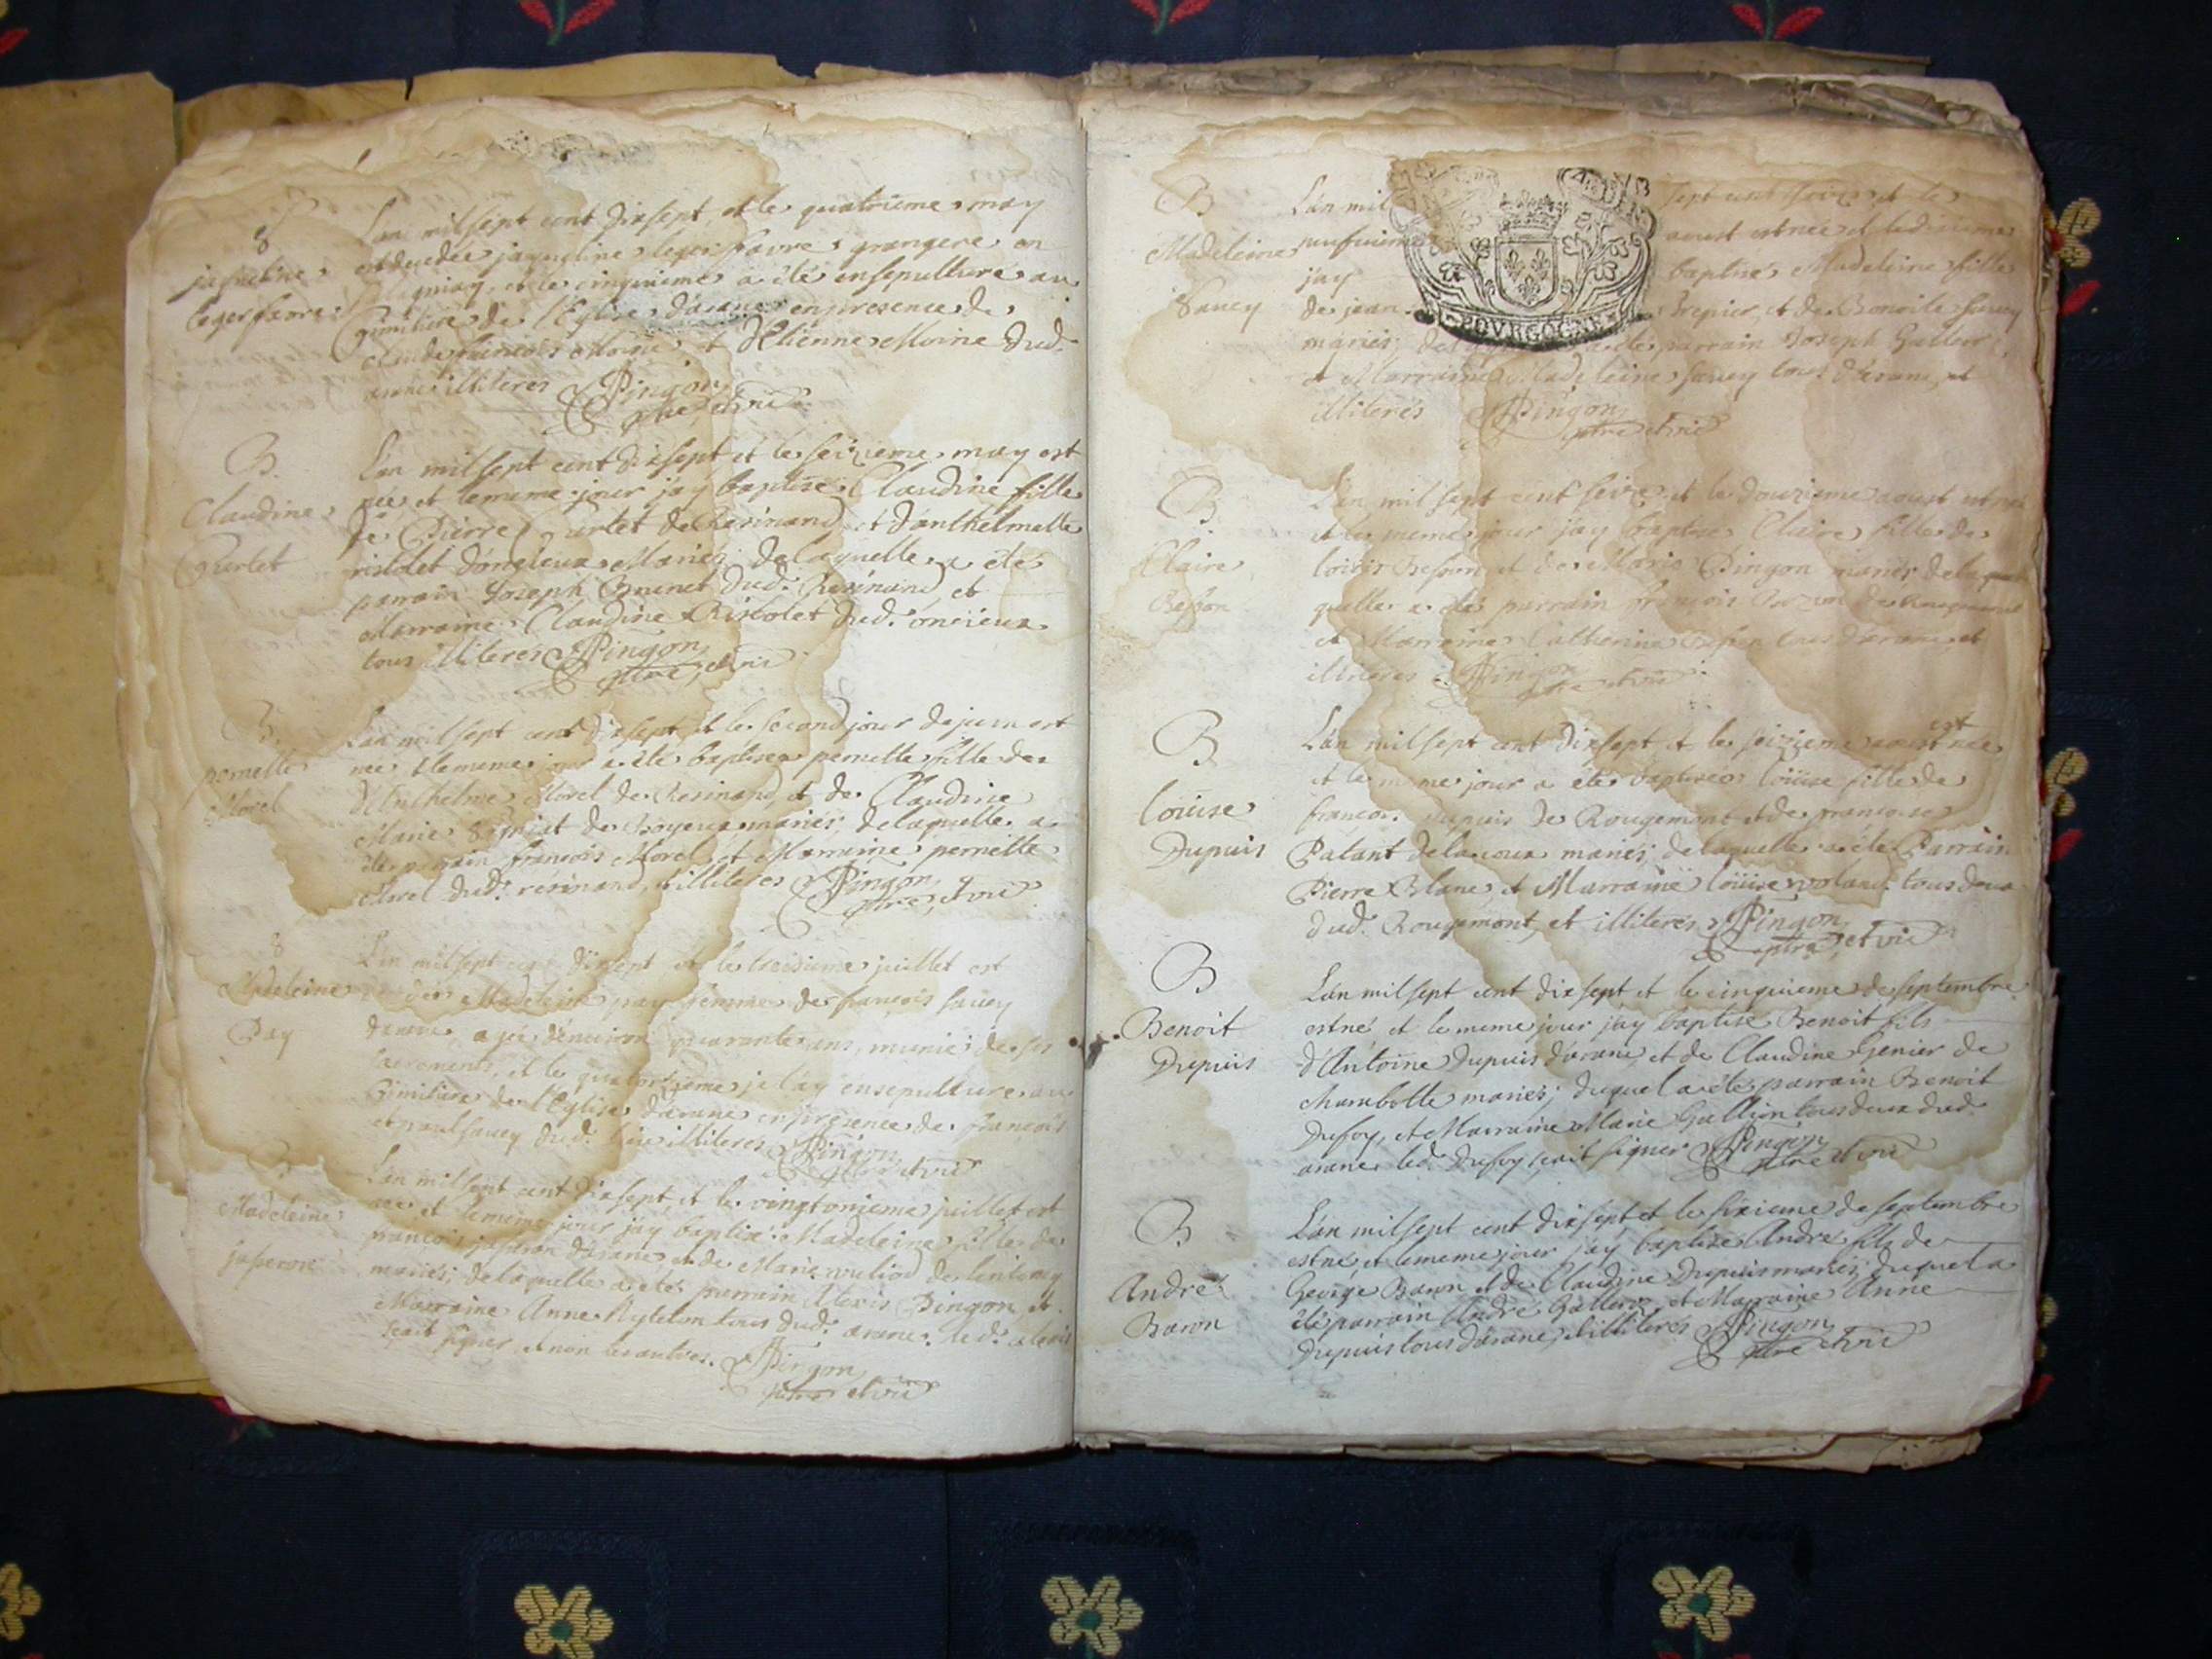 Jaqueline
legerfavre
L'an mil sept cent dixsept et le quatrieme may
est decedée jacqueline leger favre grangere en
et le cinquieme a été ensepulturé au
Cimitiere de l'Eglise d'arane en presence de
claude francois Moine et d'Etienne Moine dud.
arane illiterés Pingon
ptre et vic
B.
Claudine
Curtet
L'an mil sept cent dixsept et le seizieme may est
née et le meme jour j'ay baptisé Claudine fille
de Pierre Curtet de Resinand et d'anthelmette
ristolet d'oncieux Mariés; de laquelle a été
parrain Joseph Brunet dud. Resinand et
Marraine Claudine Ristolet dud. oncieux
tous illiterés Pingon
ptre et vic
B.
pernette
Morel
L'an mil sept cent dixsept et le second jour de juin est
née et le meme jour a été baptisée pernette fille de
d'Anthelme Morel de Resinand et de Claudine
Marie de Boyeux mariés; de laquelle a
été parrain françois Morel et Marraine pernette
Morel dud. résinand, illiterés Pingon
ptre et vic
Madeleine
Pay
L'an mil sept cent dixsept et le treisieme juillet est
decedée Madeleine pay femme de françois saucy
d'arane, agée d'environ quarante ans, munie de ses
sacrements, et le quatorzieme je l'ay ensepulturé au
Cimitiere de l'Eglise d'arane en presence de françois
et paul saucy dud. lieu illiterés Pingon
ptre et vic
B.
Madeleine
jaseron
L'an mil sept cent dixsept et le vingt onzieme juillet est
née et le meme jour j'ay baptisé Madeleine fille de
françois jaseron d'arane et de Marie de
mariés; de laquelle a été parrain Alexis Pingon et
Marraine Anne tous dud. arane. le d. alexis
scait signer et non les autres. Pingon
ptre et vic
B
Madeleine
Saucy
L'an mil sept cent seize et le
neufvieme aoust est née et le dixieme
jay baptisé Madeleine fille
de jean et de Benoite saucy
mariés; de laquelle a été parrain Joseph Galleor
et Marraine Madeleine saucy tous d'arane, et
illiterés Pingon
ptre et vic
POVRGOGNE
B
Claire
Besson
L'an mil sept cent seize et le douzieme aoust est née
et le meme jour j'ay baptisé Claire fille de
Besson et de Marie Pingon mariés de laquel
quelle a été parrain françois de Rougemont
et Marraine Catherine Besson tous d'arane, et
illiterés Pingon
ptre et vic
B
Loüise
Dupuis
L'an mil sept cent dixsept et le seizieme aoust est née
et le meme jour a été baptisée loüise fille de
françois dupuis de Rougemont et de françoise
Palant de lacoux mariés; de laquelle a été Parrain
Pierre Blanc, et Marraine loüise tous deux
dud. Rougemont, et illiterés Pingon
ptre et vic
B
Benoit
Dupuis
L'an mil sept cent dixsept et le cinquieme de septembre
est né et le meme jour j'ay baptisé Benoit fils
d'Antoine dupuis d'arane et de Claudine Genier de
charabotte mariés; duquel a été parrain Benoit
Dufoy, et Marraine Marie Gallion tous deux dud.
arane led. Dufoy scait signer Pingon
ptre et vic
B
André
Baron
L'an mil sept cent dixsept et le sixieme de septembre
est né, et le meme jour j'ay baptisé André fils de
George Baron et de Claudine Dupuis mariés; duquel a
été parrain André Galleor, et Marraine Anne
Dupuis tous d'arane, et illiterés Pingon
ptre et vic